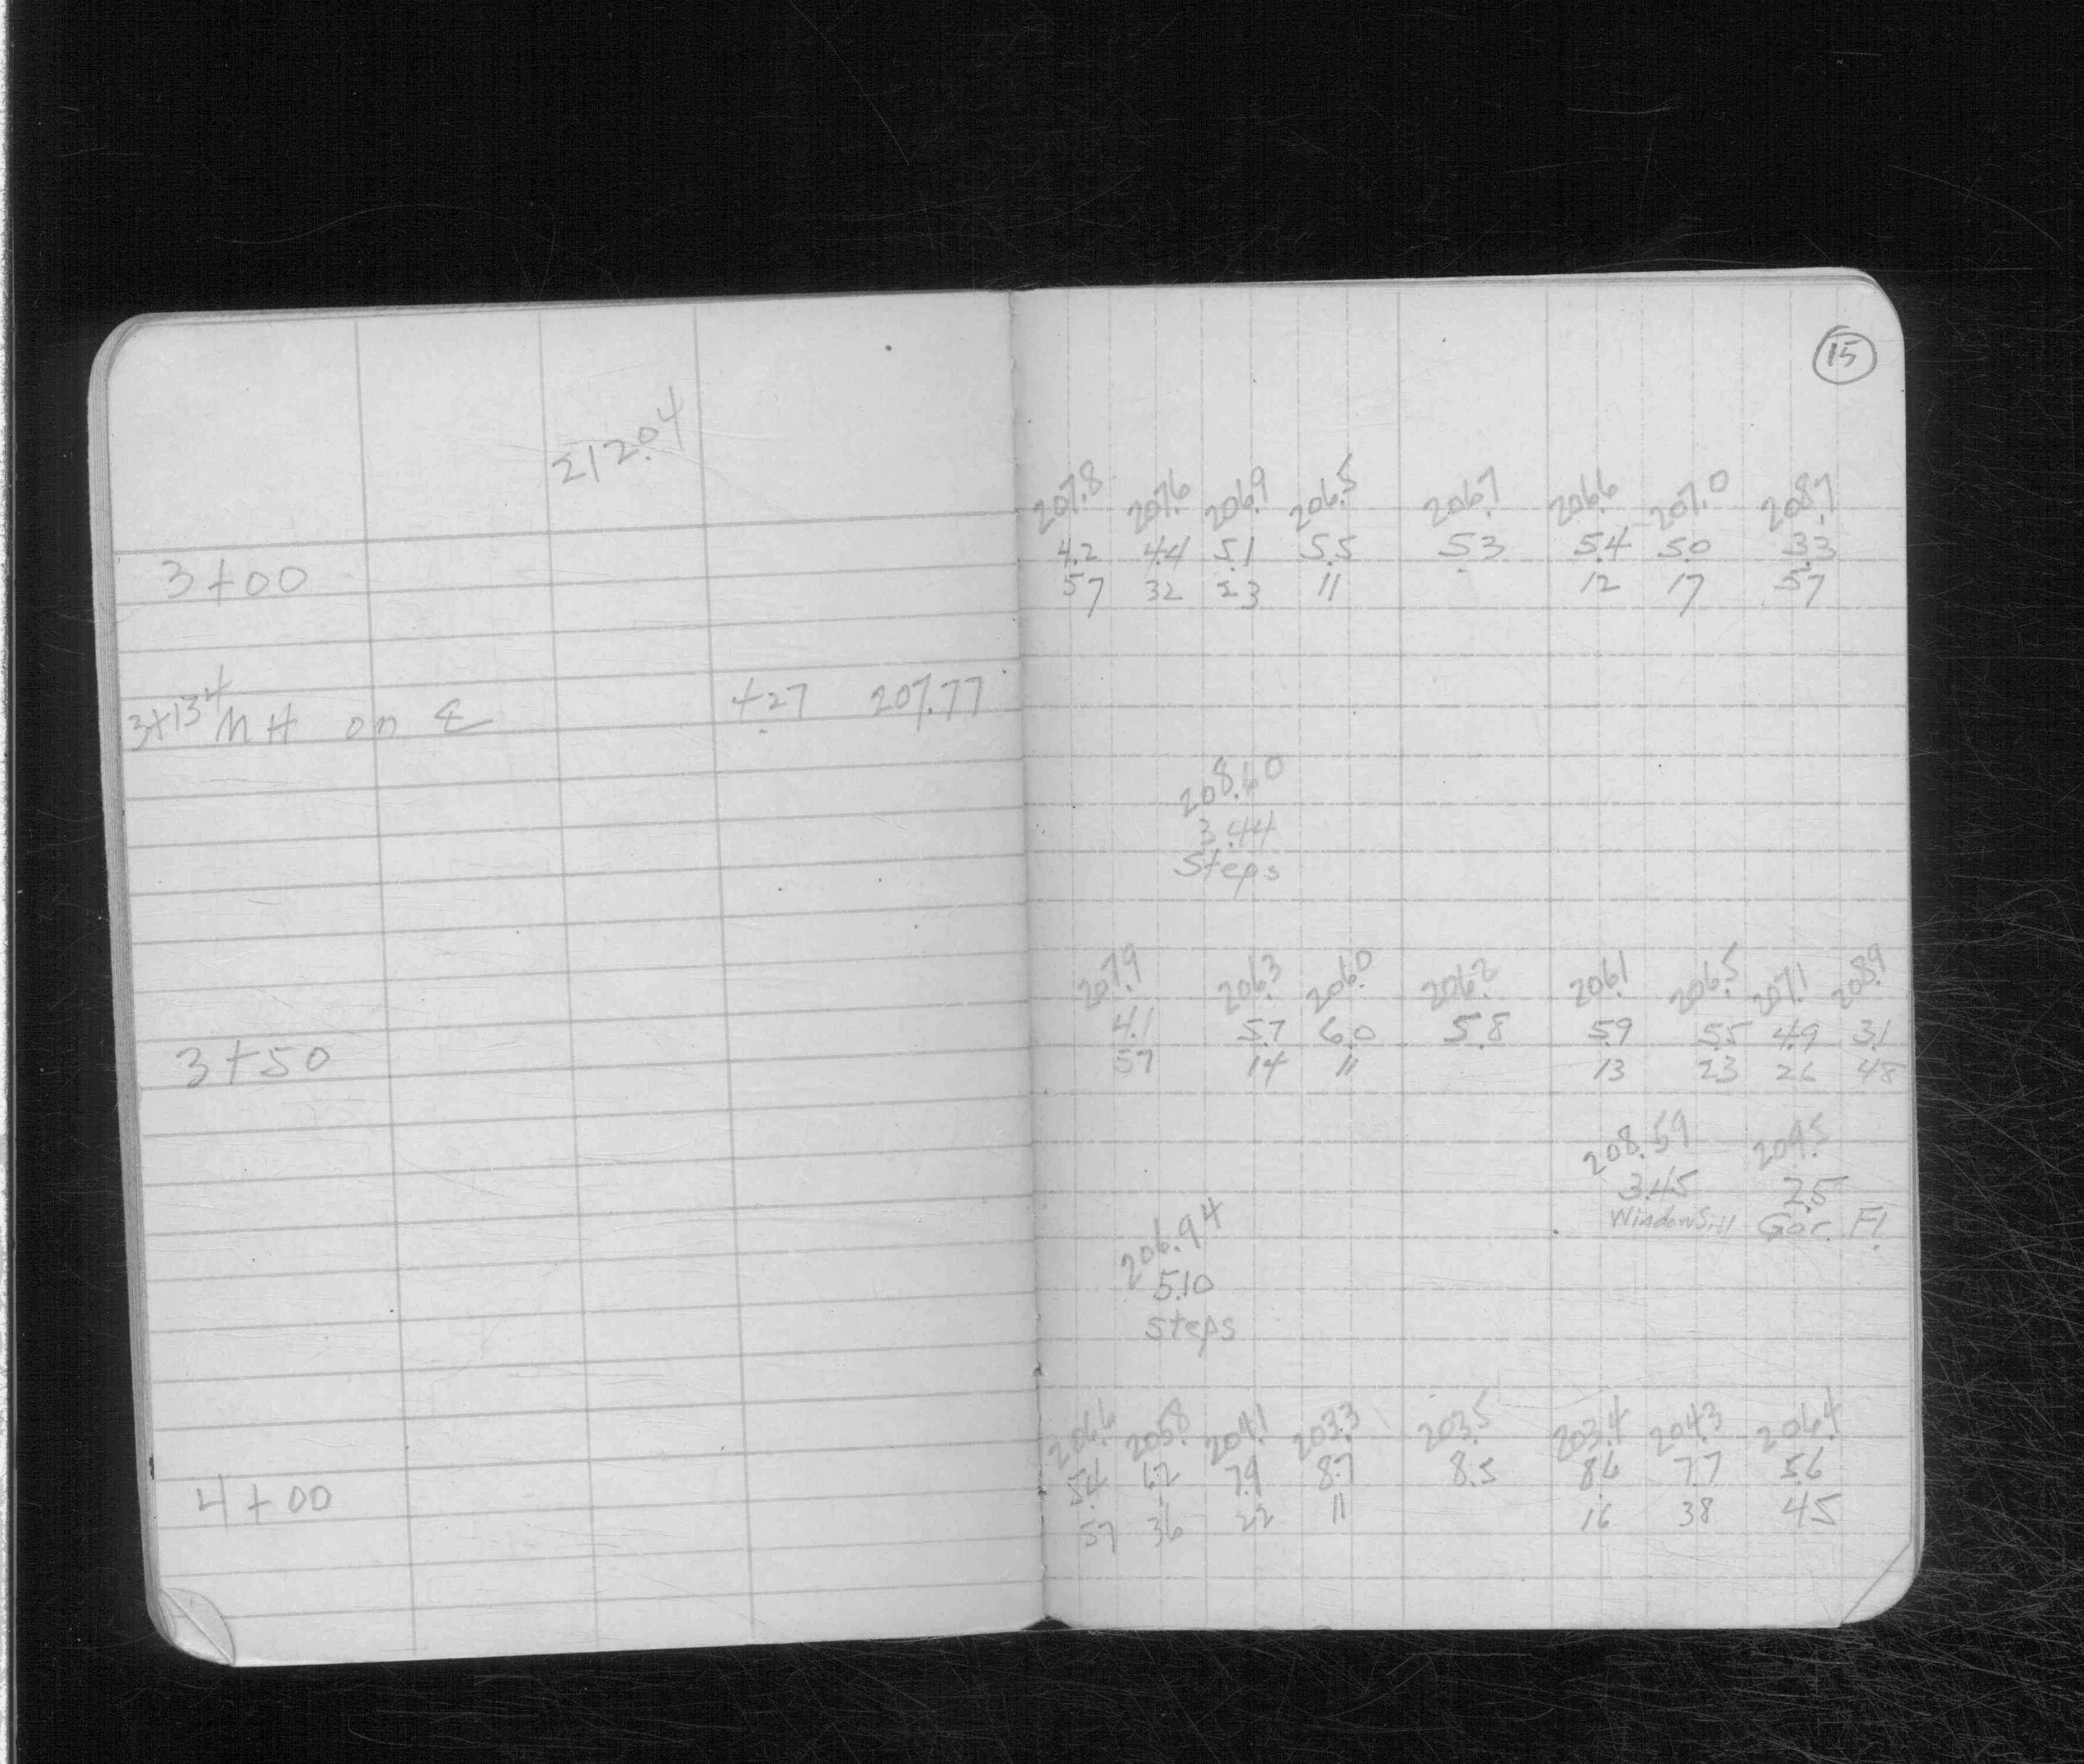 15
212.04
207.8 207.6 206.9 206.5 206.7 206.6 207.0 208.7
4.2 4.4 5.1 5.5 5.3 5.4 5.0 3.3
3+00
57 32 23 11 12 17 57
3+13⁴ MH on ℄ 4.27 207.77
208.60
3.44
Steps
207.9 206.3 206.0 206.2 206.1 206.5 207.1 208.9
4.1 5.7 6.0 5.8 5.9 5.5 4.9 3.1
3+50
57 14 11 13 23 26 48
208.59 209.5
3.45 2.5
WindowSill Gar. Fl.
206.94
5.10
steps
206.6 205.8 204.1 203.3 203.5 203.4 204.3 206.4
5.4 6.2 7.9 8.7 8.5 8.6 7.7 5.6
4+00
57 36 22 11 16 38 45